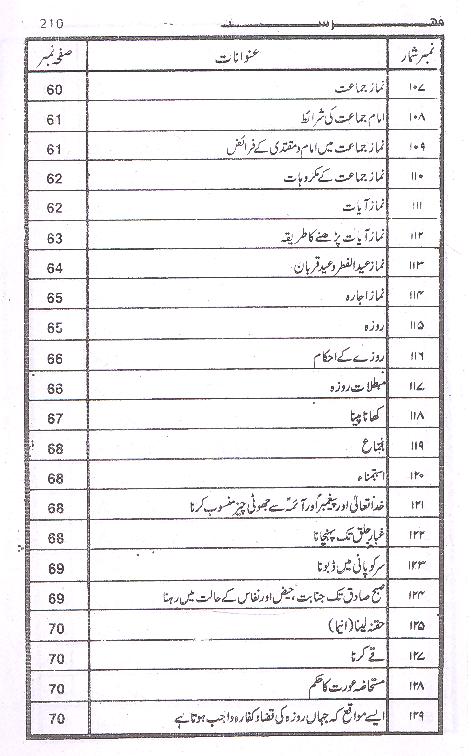 فہرست 210
نمبر شمار عنوانات صفحہ نمبر
۱۰۷ نماز جماعت 60
۱۰۸ امام جماعت کی شرائط 61
۱۰۹ نماز جماعت میں امام و مقتدی کے فرائض 61
۱۱۰ نماز جماعت کے مکروہات 62
۱۱۱ نماز آیات 62
۱۱۲ نماز آیات پڑھنے کا طریقہ 63
۱۱۳ نماز عید الفطر و عید قربان 64
۱۱۴ نماز اجارہ 65
۱۱۵ روزہ 65
۱۱۶ روزے کے احکام 66
۱۱۷ مبطلات روزہ 66
۱۱۸ کھانا پینا 67
۱۱۹ جماع 68
۱۲۰ استمناء 68
۱۲۱ خدا تعالیٰ اور پیغمبرؐ اور آئمہؑ سے جھوٹی چیز منسوب کرنا 68
۱۲۲ غبار حلق تک پہنچانا 68
۱۲۳ سر کو پانی میں ڈبونا 69
۱۲۴ صبح صادق تک جنابت، حیض اور نفاس کے حالت میں رہنا 69
۱۲۵ حقنہ لینا (انیما) 70
۱۲۷ قے کرنا 70
۱۲۸ مستحاضہ عورت کا حکم 70
۱۲۹ ایسے مواقع کہ جہاں روزہ کی قضا و کفارہ واجب ہوتا ہے 70